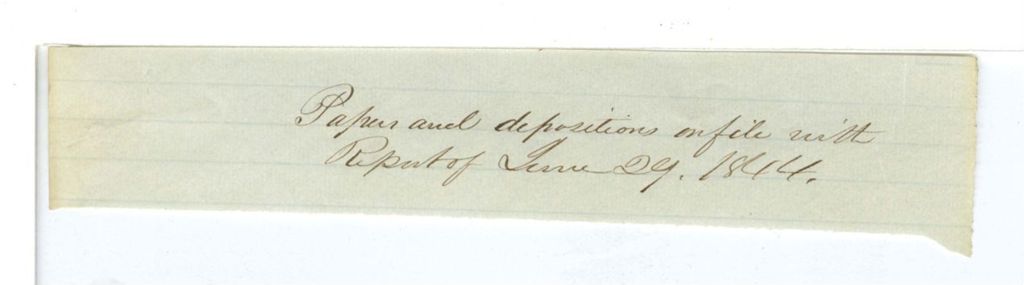 Papers and depositions on file with
Report of June 29. 1844.